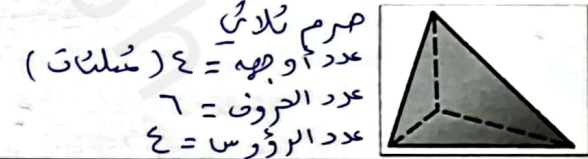 هرم ثلاثي
عدد أوجهه = ٤ ( مثلثات )
عدد الحروف = ٦
عدد الرؤوس = ٤